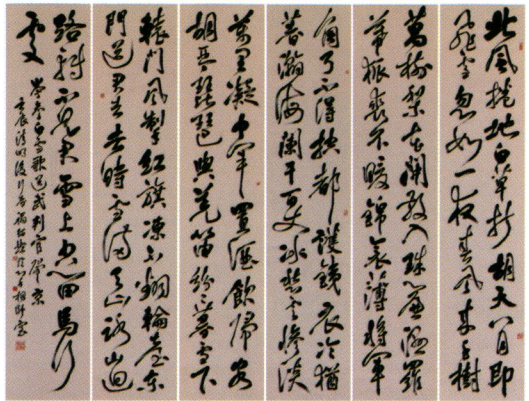 北風捲地白草折胡天八月即
飛雪忽如一夜春風來千樹
萬樹梨花開散入珠簾濕羅
幕狐裘不暖錦衾薄將軍
角弓不得控都護鐵衣冷猶
著瀚海闌干百丈冰愁雲慘淡
萬里凝中軍置酒飲歸客
胡琴琵琶與羌笛紛紛暮雪下
轅門風掣紅旗凍不翻輪臺東
門送君去去時雪滿天山路山迴
路轉不見君雪上空留馬行
處
岑參白雪歌送武判官歸京
壬辰清明後